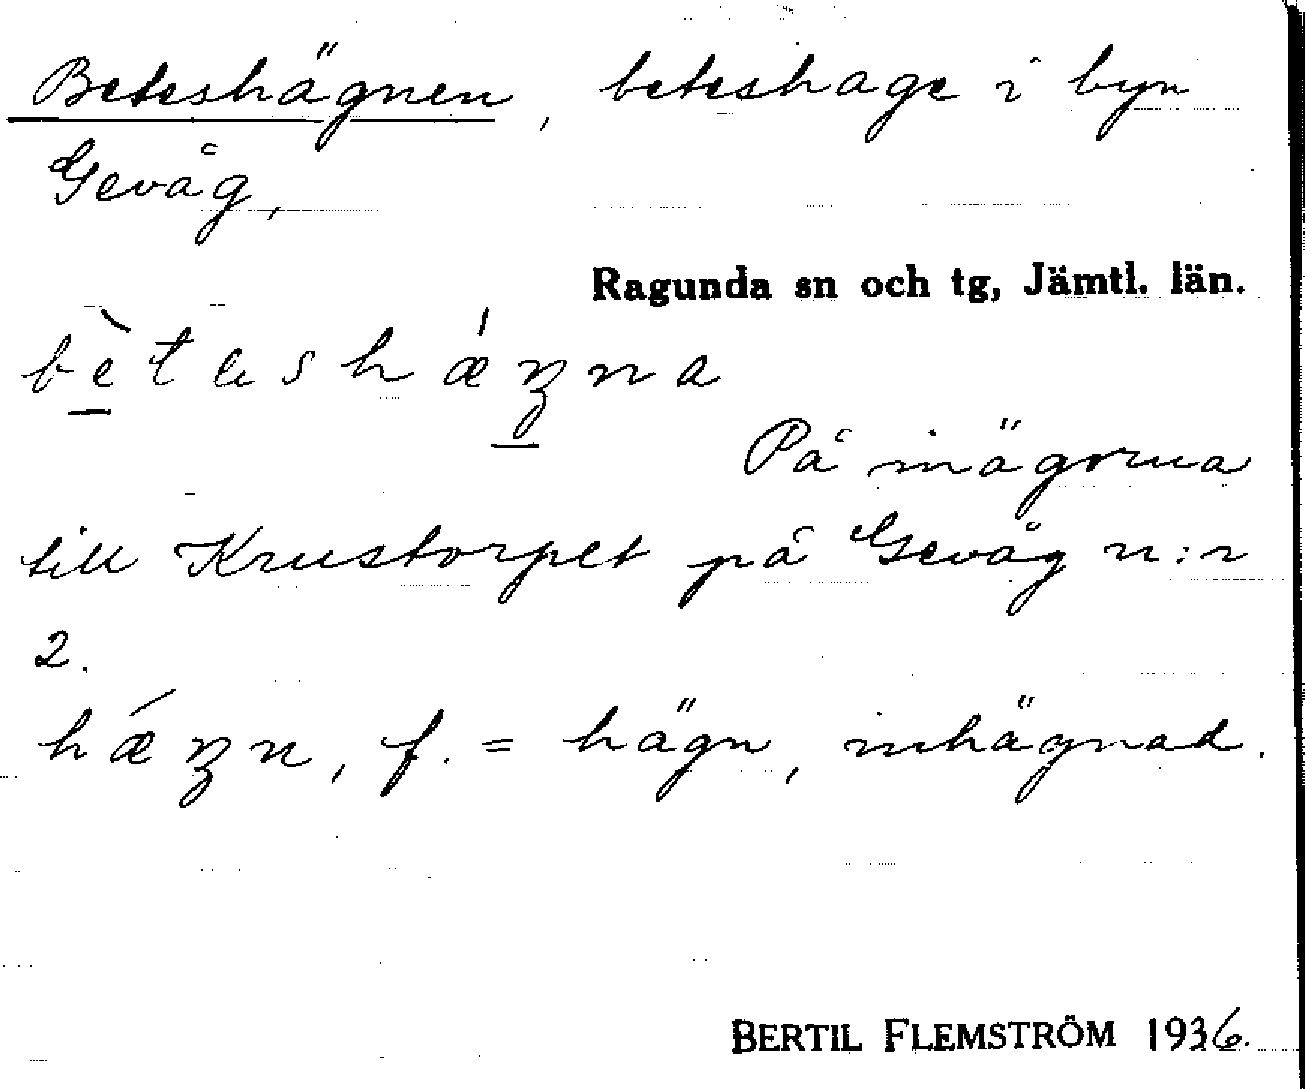 Beteshägnen, beteshage i byn
Gevåg,
Ragunda sn och tg, Jämtl. län.
bètesháʒna
På inägorna
till Krustorpet på Gevåg n:r
2.
hǽʒn, f. = hägn, inhägnad.
BERTIL FLEMSTRÖM 1936.